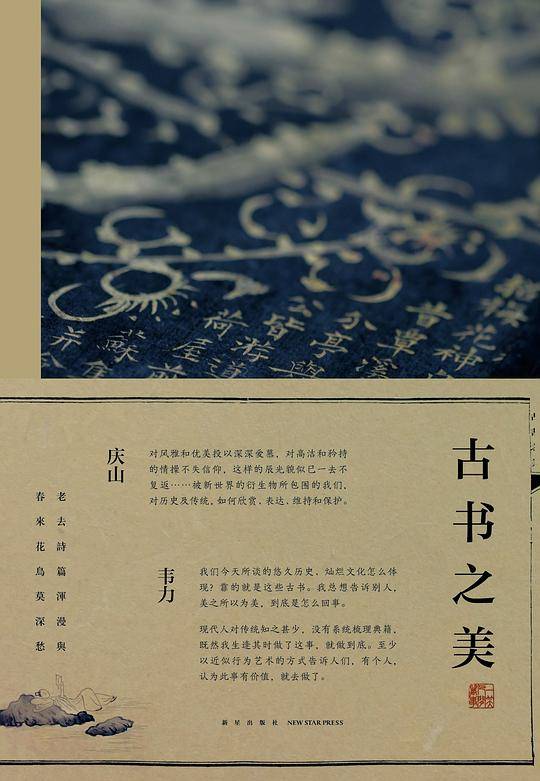 古书之美
庆山
对风雅和优美投以深深爱慕,对高洁和矜持
的情操不失信仰,这样的辰光貌似已一去不
复返……被新世界的衍生物所包围的我们,
对历史及传统,如何欣赏、表达、维持和保护。
韦力
我们今天所谈的悠久历史、灿烂文化怎么体
现?靠的就是这些古书。我总想告诉别人,
美之所以为美,到底是怎么回事。
现代人对传统知之甚少,没有系统梳理典籍,
既然我生逢其时做了这事,就做到底。至少
以近似行为艺术的方式告诉人们,有个人,
认为此事有价值,就去做了。
老去詩篇渾漫與
春來花鳥莫深愁
新星出版社 NEW STAR PRESS